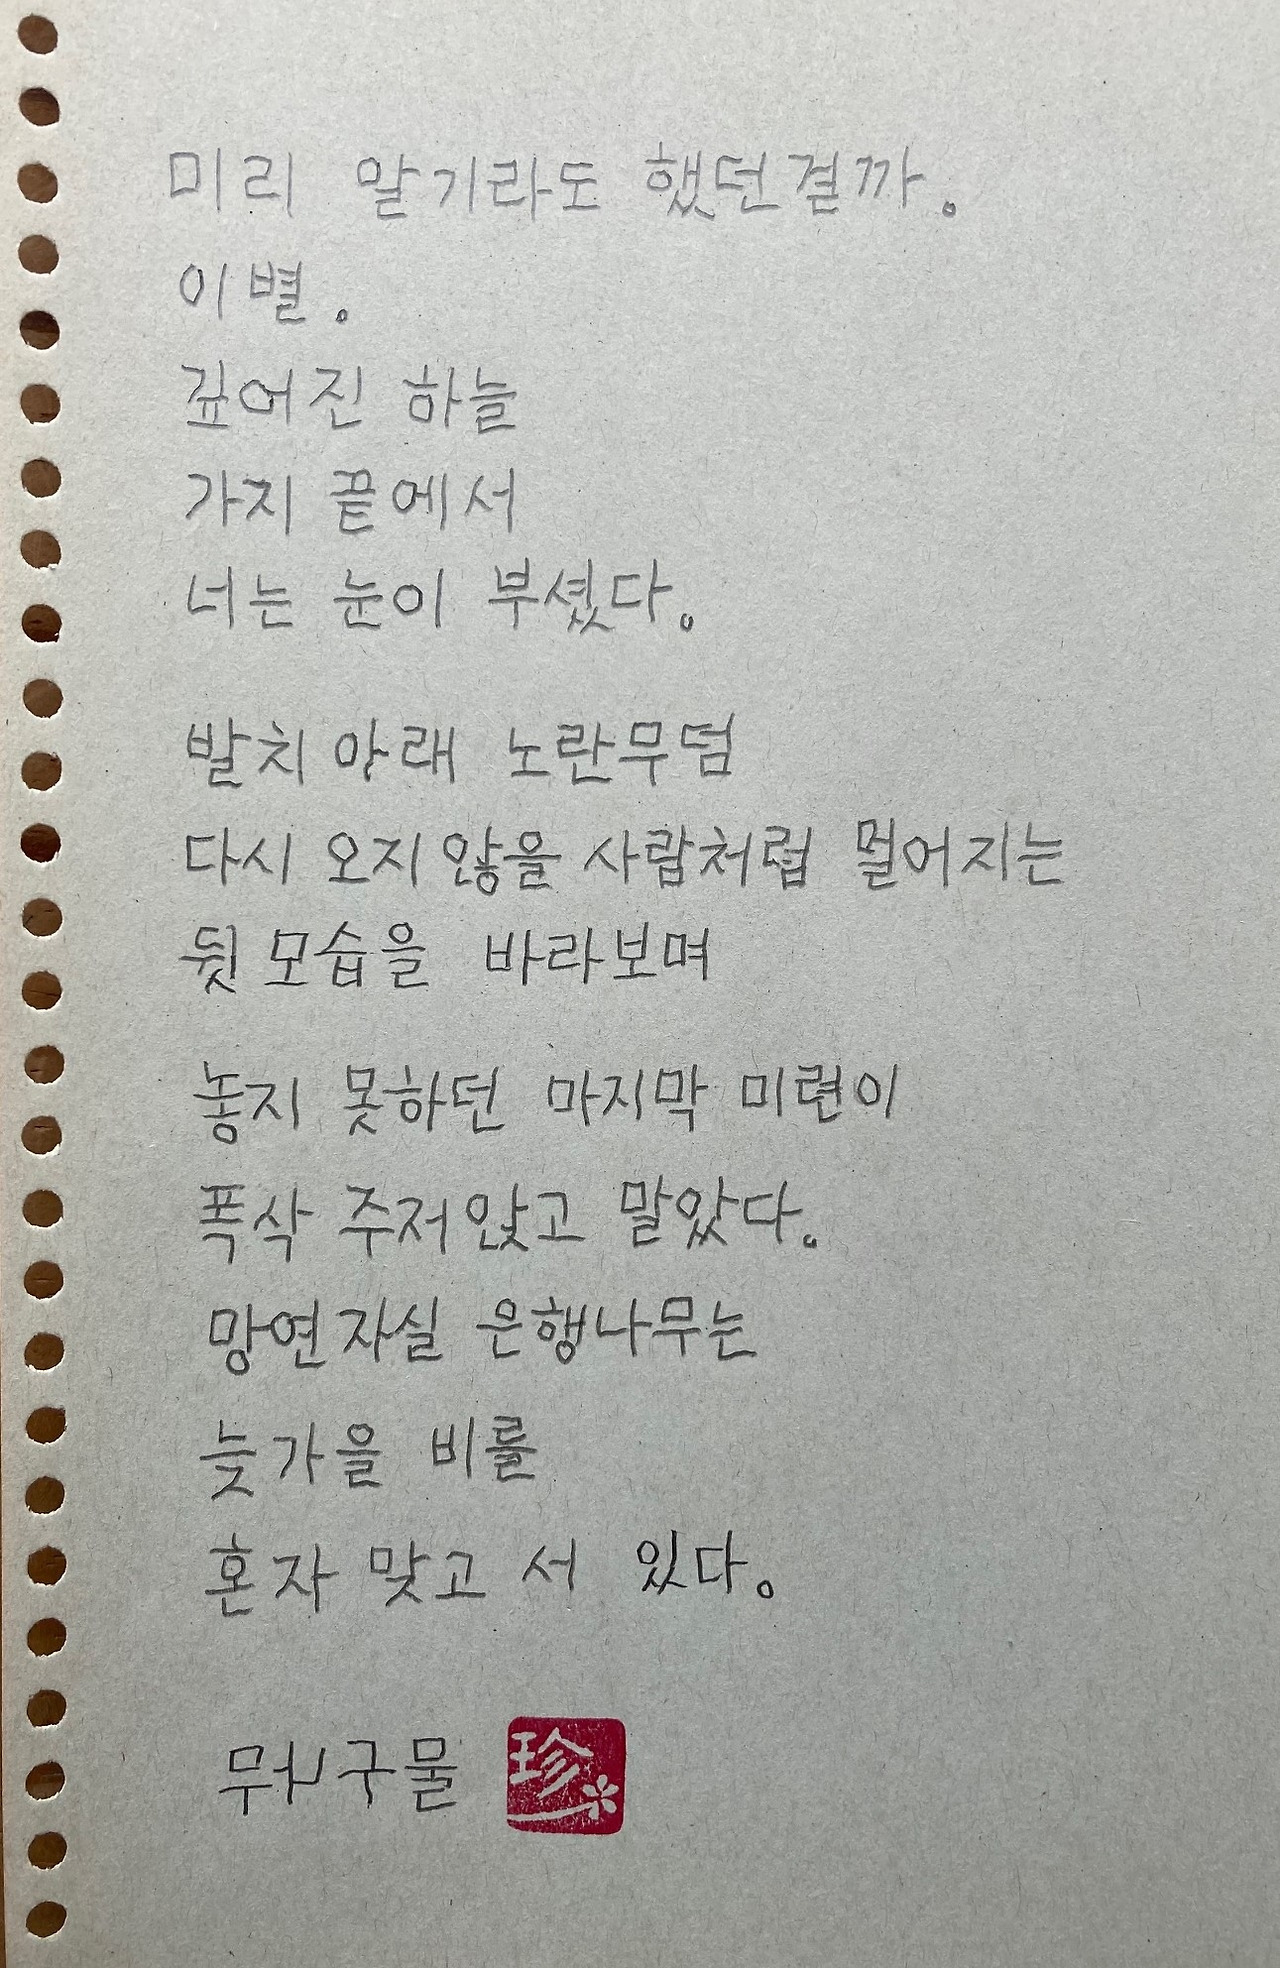 미리 알기라도 했던걸까.
이별.
깊어진 하늘
가지 끝에서
너는 눈이 부셨다.
발치 아래 노란무덤
다시 오지 않을 사람처럼 멀어지는
뒷모습을 바라보며
놓지 못하던 마지막 미련이
폭삭 주저앉고 말았다.
망연자실 은행나무는
늦가을 비를
혼자 맞고 서 있다.
구물 珍